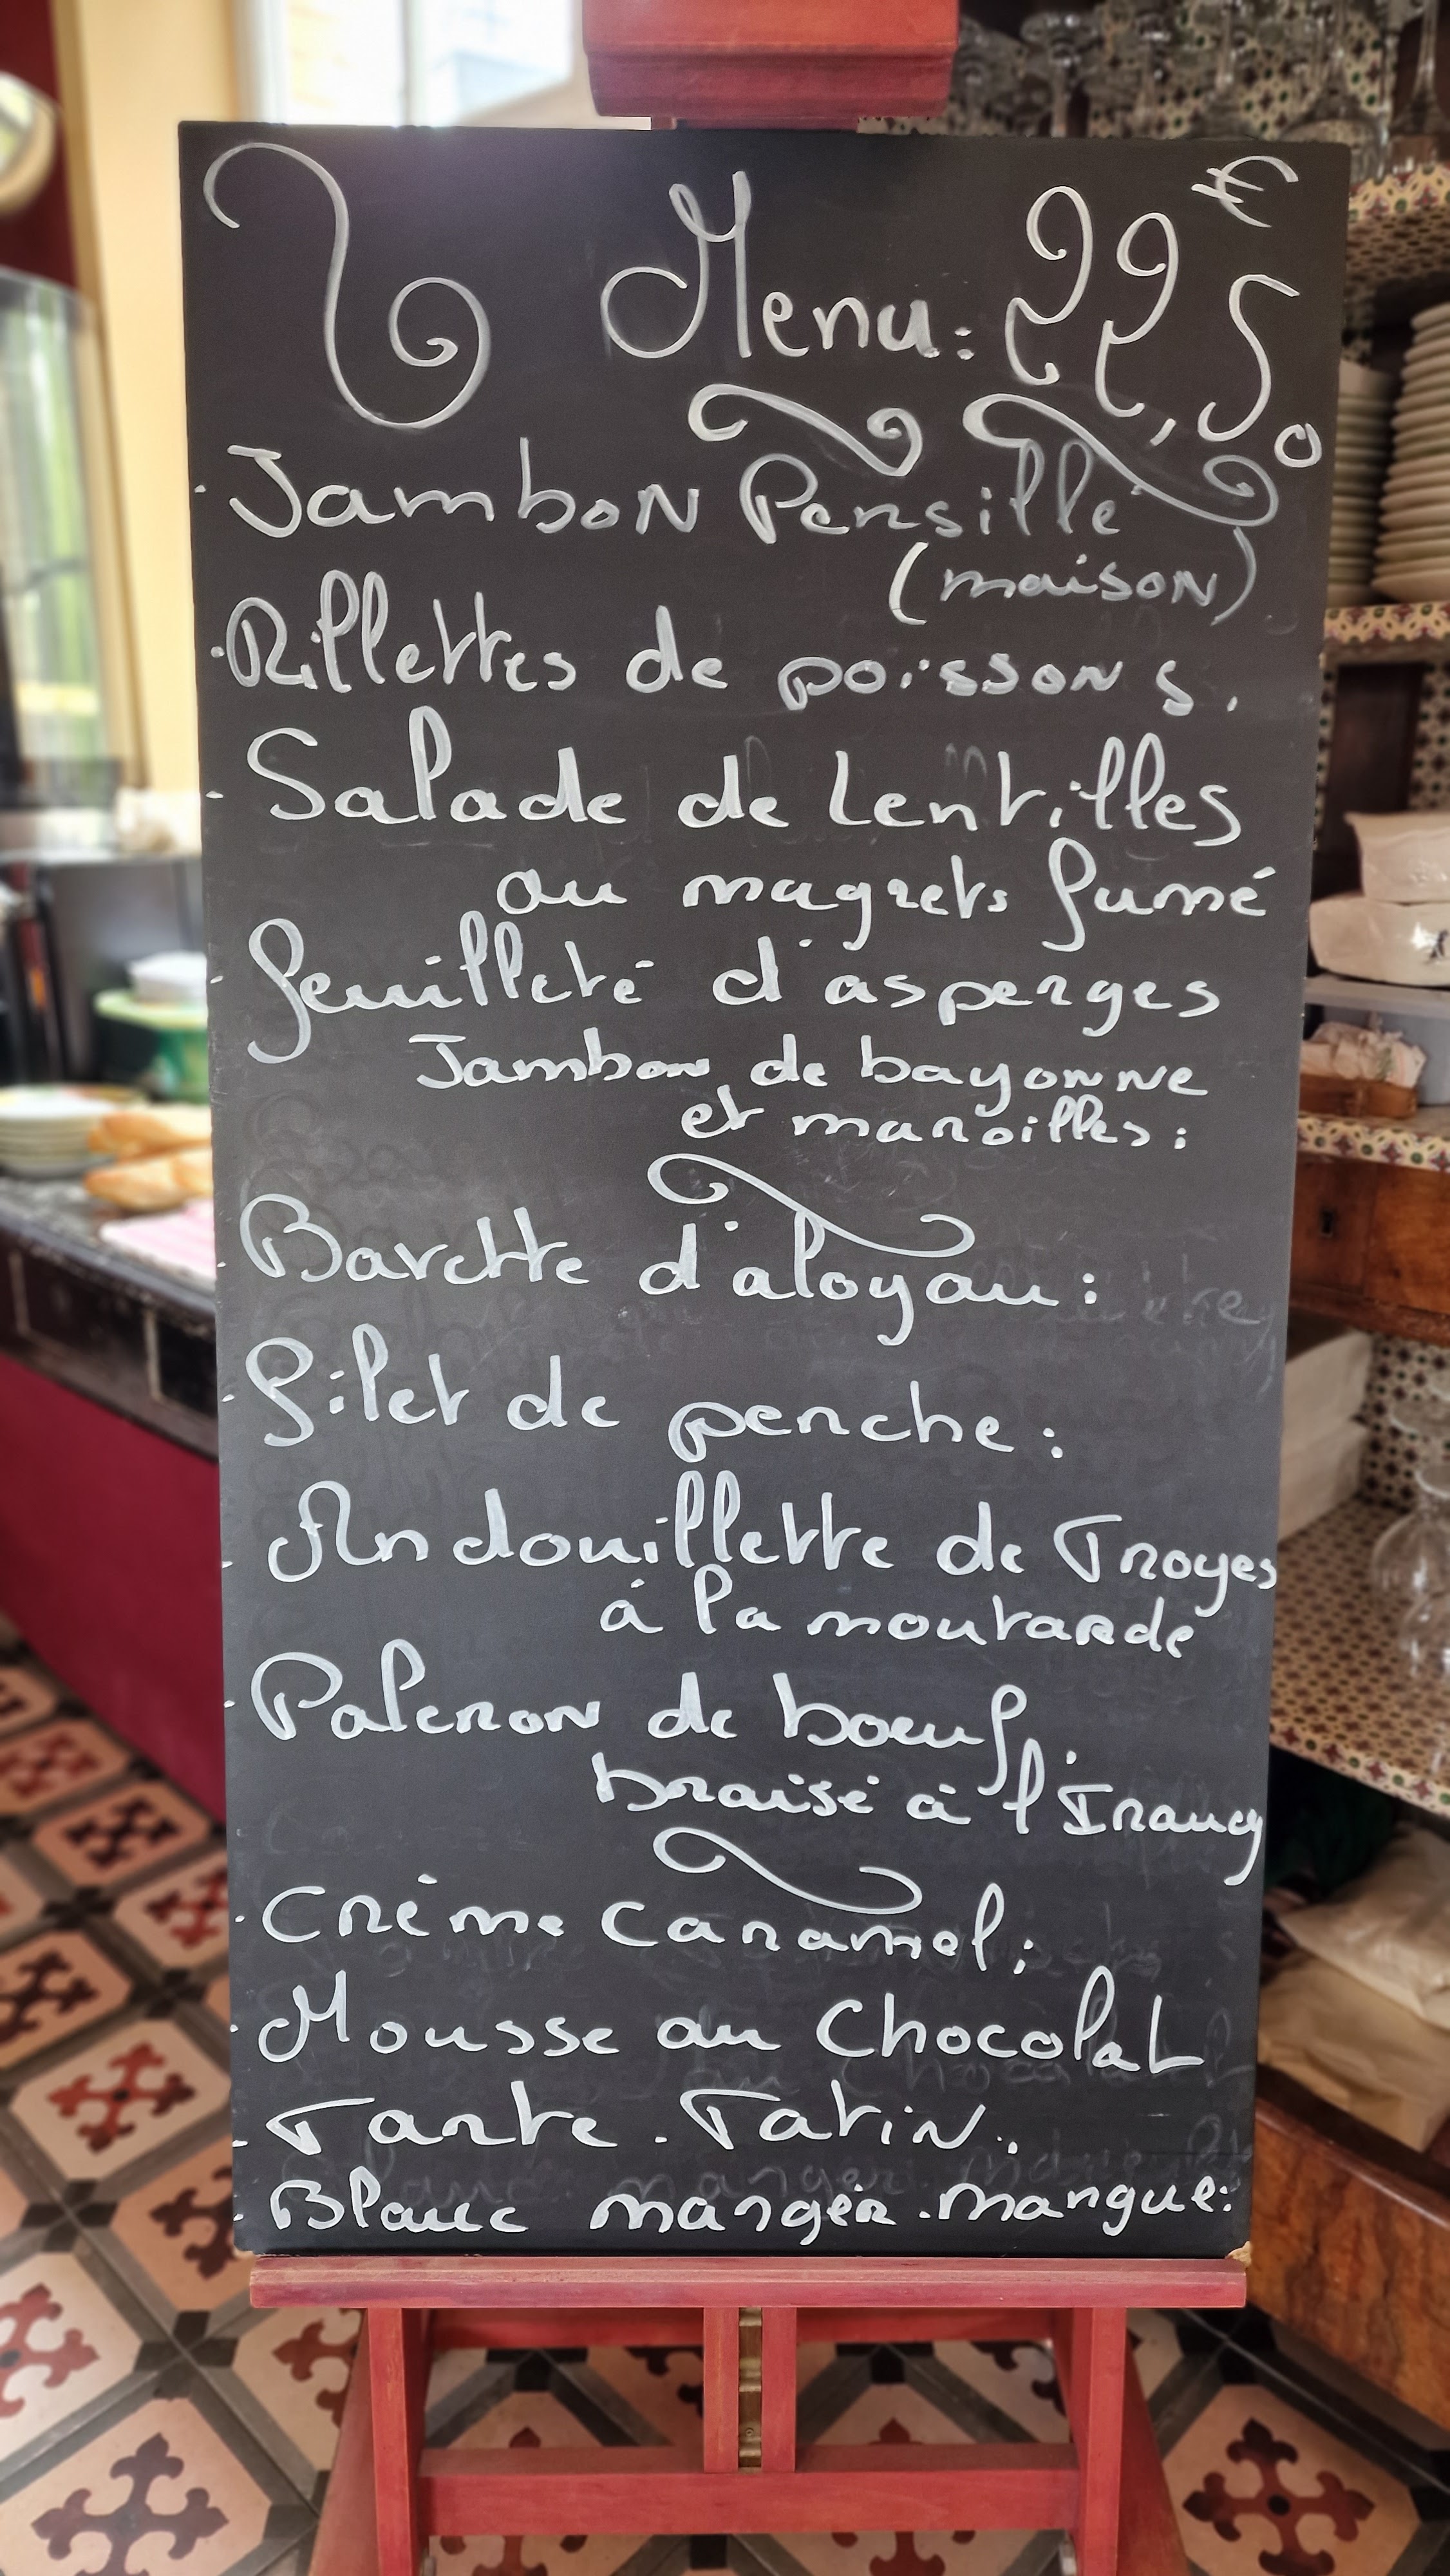 Menu: 22,50 €
- Jambon Persillé
(maison)
- Rillettes de poissons.
- Salade de Lentilles
au magrets fumé
- feuilleté d'asperges
Jambon de bayonne
et maroilles:
- Bavette d'aloyau:
- filet de perche:
- Andouillette de Troyes
à la moutarde
- Paleron de boeuf
braisé à l'Irancy
- Crème Caramel:
- Mousse au Chocolat
- Tarte. Tatin.
- Blanc manger. mangue: